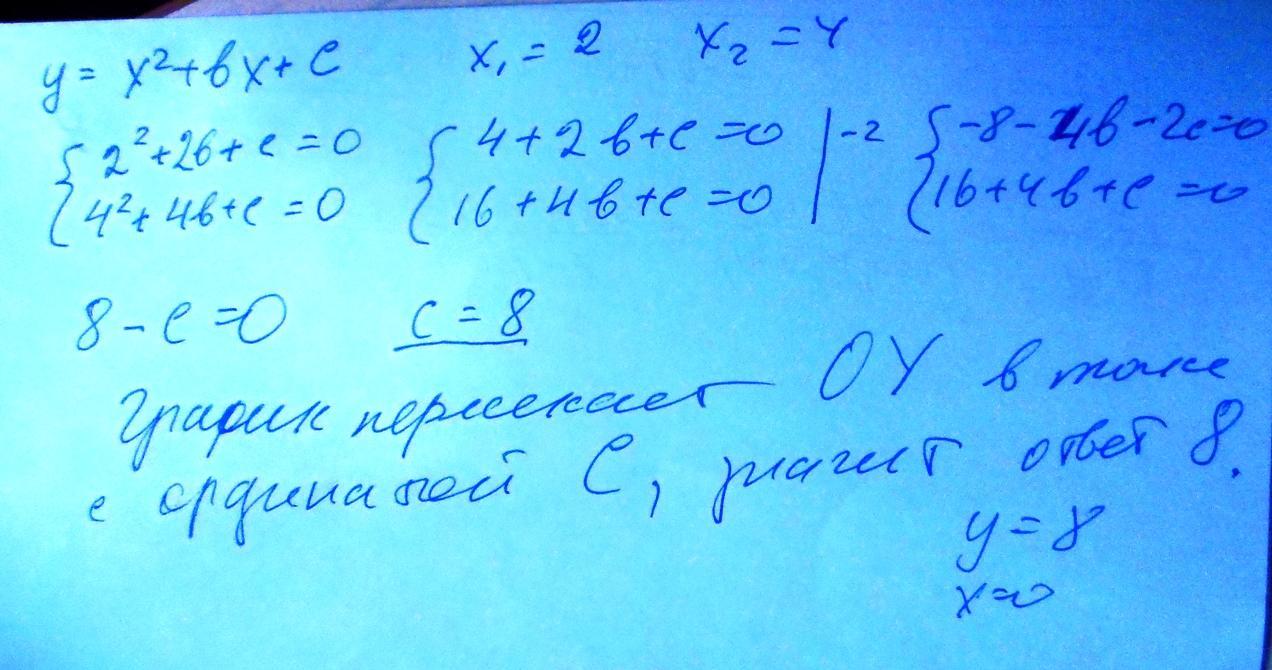 y = x²+вx+c    x₁ = 2    x₂ = 4
{2²+2в+c=0    {4+2в+c=0 |-2    {-8-4в-2c=0
{4²+4в+c=0    {16+4в+c=0 |    {16+4в+c=0
8-c=0    c=8
График пересекает OY в точке
с ординатой C, значит ответ 8.
y=8
x=0